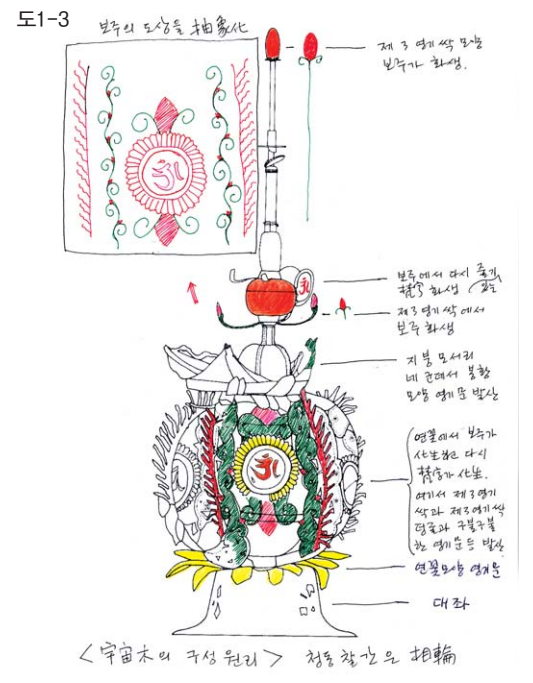 도1-3
보주의 도상을 抽象化
제3영기싹 모양
보주가 화생.
보주에서 다시 줄기
화생
제3영기싹에서
보주 화생
지붕 모서리
네 군데서 봉황
모양 영기문 발산
연꽃에서 보주가
生하고 다시
梵字가 化生.
여기서 제3영기
싹과 제3영기싹
덩굴과 구불구불
한 영기문등 발산
연꽃모양 영기문
대좌
<宇宙木의 구성원리> 청동찰간은 相輪